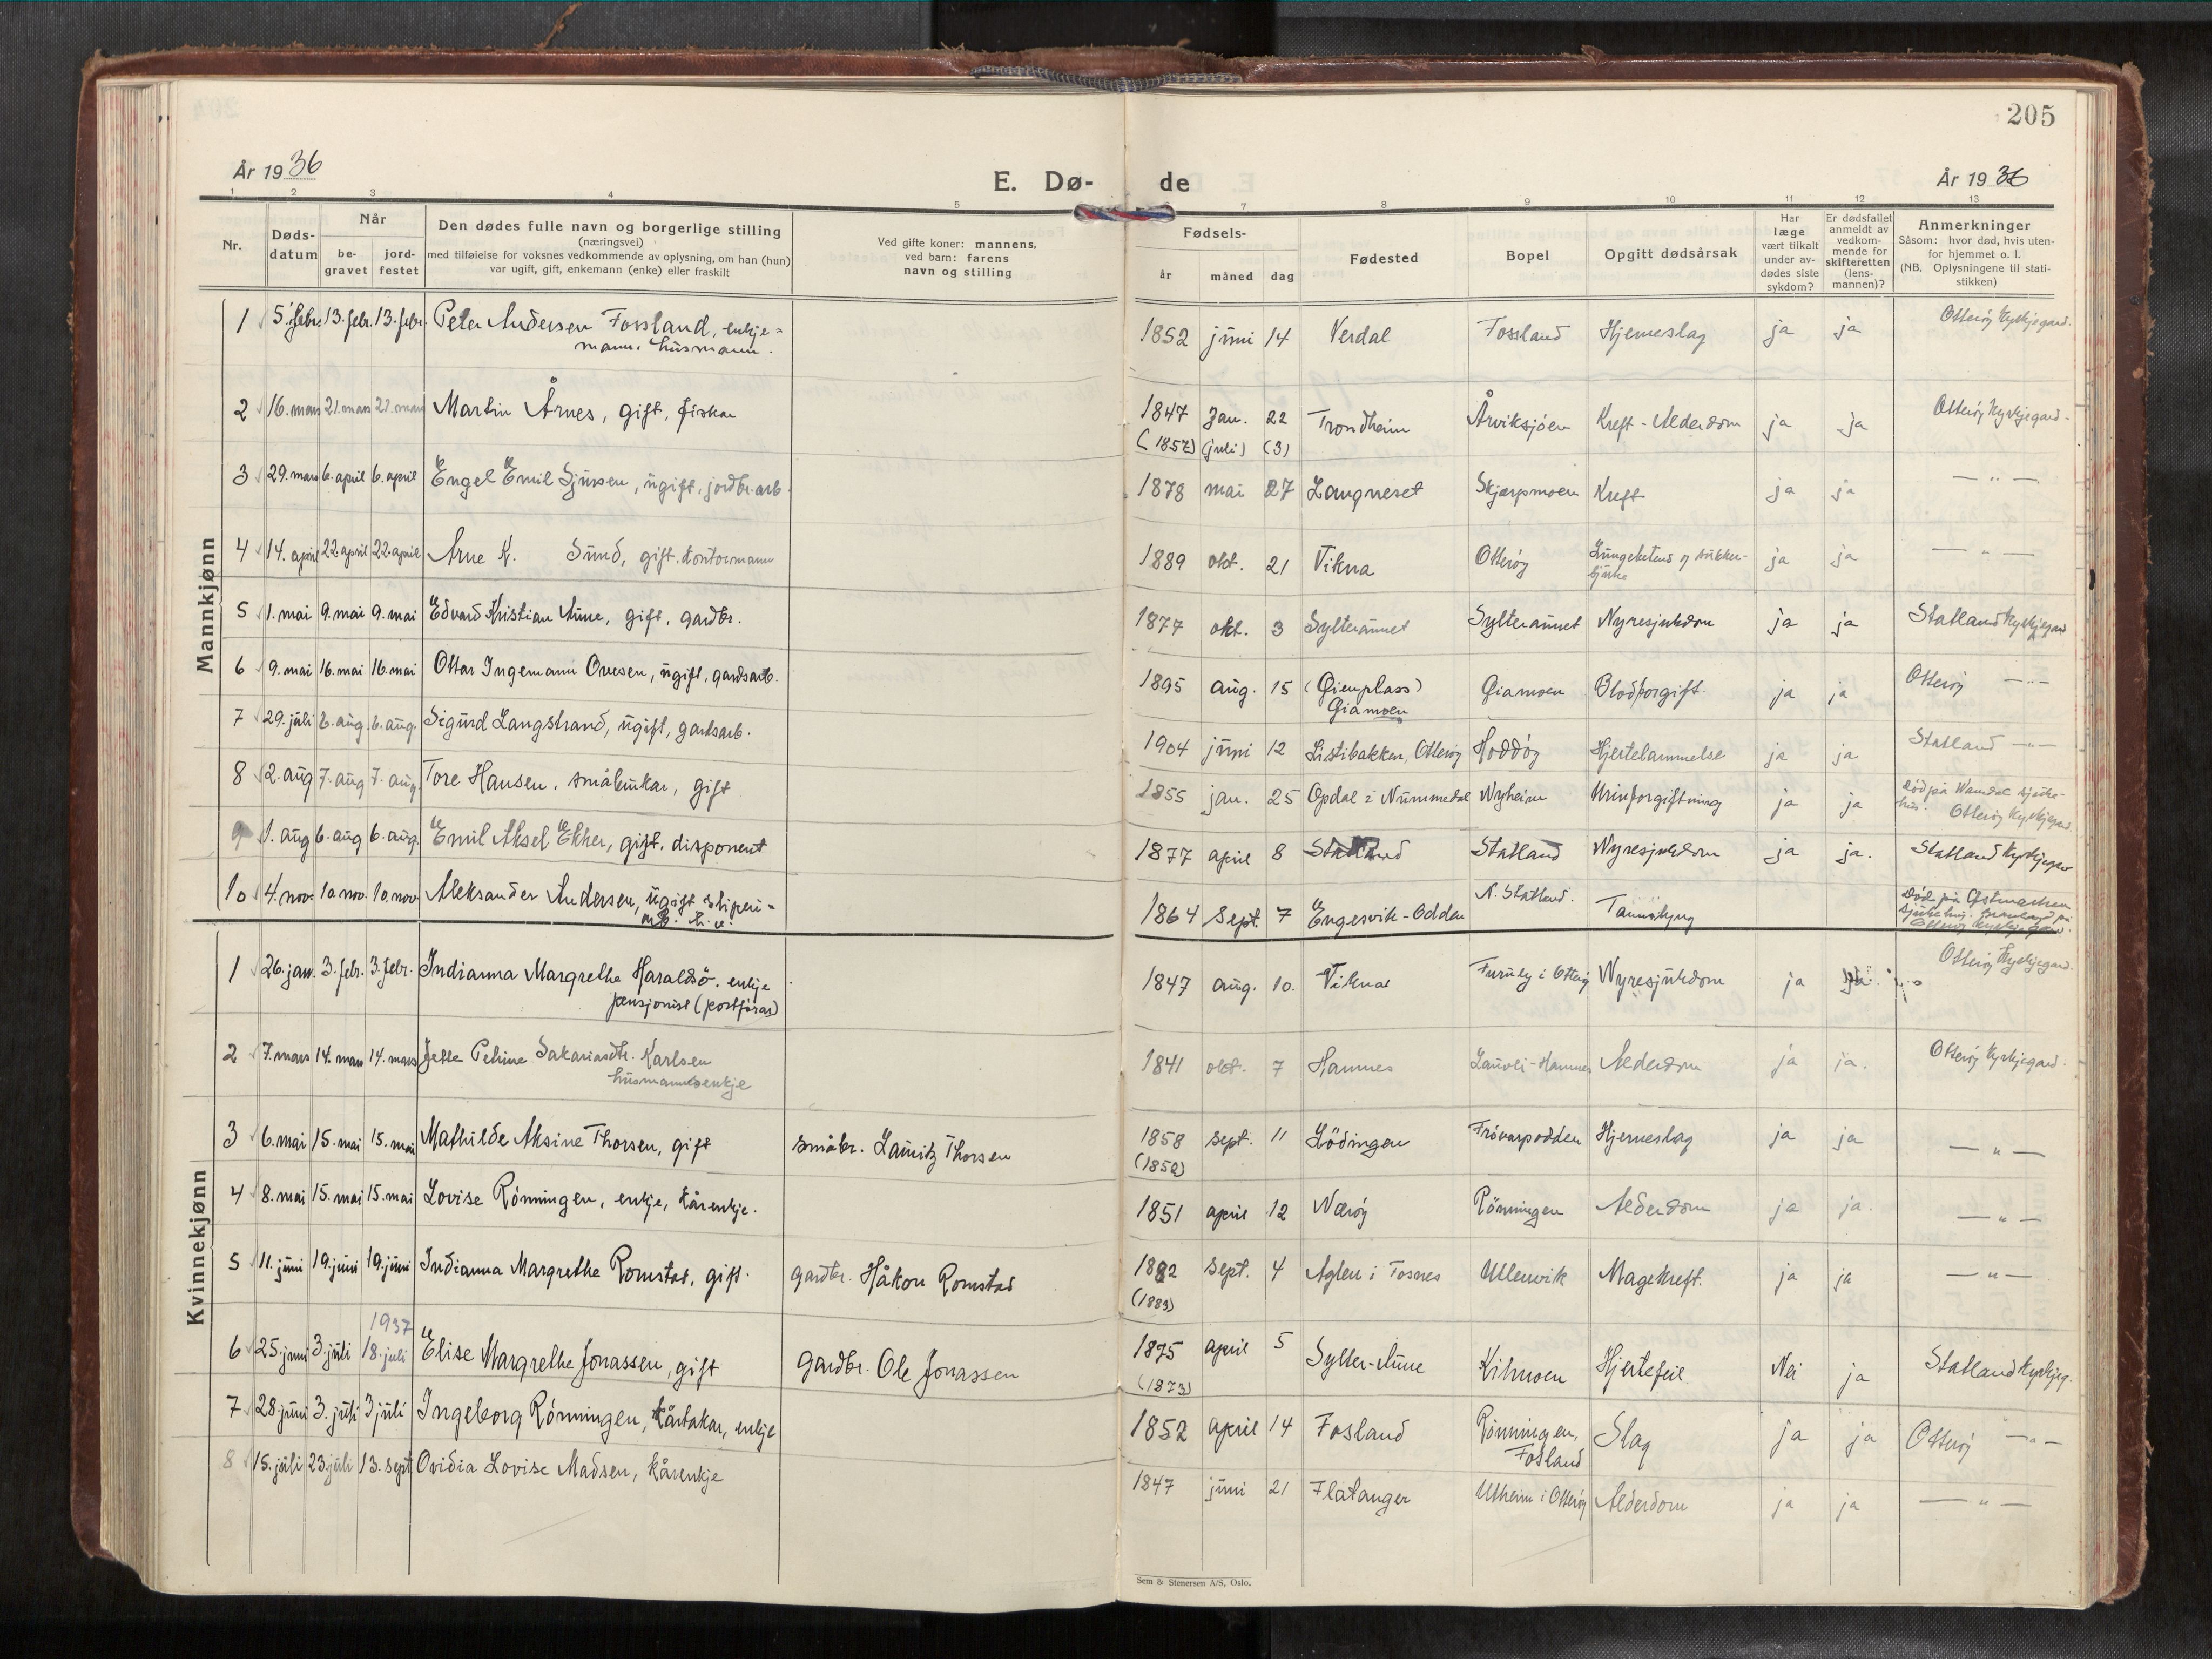 205
År 1936
E. Dø-
de
År 1936
1 2 3 4 5 7 8 9 10 11 12 13
Nr.
Døds-
datum
Når
be-
gravet
jord-
festet
Den dødes fulle navn og borgerlige stilling
(næringsvei)
med tilføielse for voksnes vedkommende av oplysning, om han (hun)
var ugift, gift, enkemann (enke) eller fraskilt
Ved gifte koner: mannens,
ved barn: farens
navn og stilling
Fødsels-
år måned dag
Fødested
Bopel
Opgitt dødsårsak
Har
læge
vært tilkalt
under av-
dødes siste
sykdom?
Er dødsfallet
anmeldt av
vedkom-
mende for
skifteretten
(lens-
mannen)?
Anmerkninger
Såsom: hvor død, hvis uten-
for hjemmet o. l.
(NB. Oplysningene til stati-
stikken)
Mannkjønn
1 5. febr. 13. febr. 13. febr. Peter Andersen Fossland, enkje-
mann. husmann.
1852 juni 14 Verdal Fossland Hjerneslag ja ja Otterøy kyrkjegard.
2 16. mars 21. mars 21. mars Martin Årnes, gift, fiskar
1847 jan. 22 Trondheim Årviksjøen Kreft - Alderdom ja ja Otterøy kyrkjegard.
(1857) (juli) (3)
3 29. mars 6. april 6. april Engel Emil Sjursen, ugift, jordbr.arb.
1878 mai 27 Laugneset Skjærpmoen Kreft ja ja — " —
4 14. april 22. april 22. april Arne K. Sund, gift. kontormann
1889 okt. 21 Vikna Otterøy Lungebetens og sukker-
sjuke ja ja — " —
5 1. mai 9. mai 9. mai Edvard Kristian Aune, gift, gardbr.
1877 okt. 3 Sylteraunet Sylteraunet Nyresjukdom ja ja Statland kyrkjegard
6 9. mai 16. mai 16. mai Ottar Ingemann Ovesen, ugift, gardsarb.
1895 aug. 15 (Gienplass) Giamoen Blodforgift. ja ja Otterøy — " —
Giamoen
7 29. juli 6. aug. 6. aug. Sigurd Langstrand, ugift, gardsarb.
1904 juni 12 Listibakken, Otterøy Hoddøy Hjertelammelse ja ja Statland — " —
8 2. aug 7. aug 7. aug. Tore Hansen, småbrukar, gift
1855 jan. 25 Opdal i Nummedal Nyheim Urinforgiftning ja ja Død på Namdal sjuke-
hus. Otterøy kyrkjegard.
9 1. aug 6. aug 6. aug. Emil Aksel Ekker, gift, disponent
1877 april 8 Statland Statland Nyresjukdom ja ja. Statland kyrkjegar
10 4. nov. 10. nov. 10. nov. Aleksander Andersen, ugift
1864 sept. 7 Engesvik-Odden N. Statland.
Otterøy kyrkjegard.
Kvinnekjønn
1 26. jan. 3. febr. 3. febr. Indianna Margrethe Haraldsö. enkje
pensjonist (postførar)
1847 aug. 10. Vikna Furuly i Otterøy Nyresjukdom ja ja Otterøy kyrkjegard.
2 7. mars 14. mars 14. mars Jette Petrine Sakariasdtr. Karlsen
husmannsenkje
1841 okt. 7 Hamnes Lauvli-Hamnes Alderdom ja ja. Otterøy kyrkjegard.
3 6. mai 15. mai 15. mai Mathilde Aksine Thorsen, gift
småbr. Lauritz Thorsen
1858 sept. 11 Lödingen Frövarpodden Hjerneslag ja ja — " —
(1852)
4 8. mai 15. mai 15. mai Lovise Rönningen, enkje, kårenkje.
1851 april 12 Nærøy Rönningen Alderdom ja ja. — " —
5 11. juni 19. juni 19. juni Indianna Margrethe Romstad, gift.
gardbr. Håkon Romstad
1882 sept. 4 Aglen i Fosnes Ullenvik Magekreft. ja ja — " —
(1883)
1937
6 25. juni 3. juli 18. juli Elise Margrethe Jonassen, gift
gardbr. Ole Jonassen
1875 april 5 Sylter-Aune Kilmoen Hjertefeil Nei ja Statland kyrkjeg.
(1873)
7 28. juni 3. juli 3 juli Ingeborg Rönningen, kårtakar, enkje
1852 april 14 Fosland Rönningen, Slag ja ja Otterøy — " —
Fosland
8 15. juli 23. juli 13. sept Ovidia Lovise Madsen, kårenkje
1847 juni 21 Flatanger Utheim i Otterøy Alderdom ja ja — " —
Sem & Stenersen A/S, Oslo.